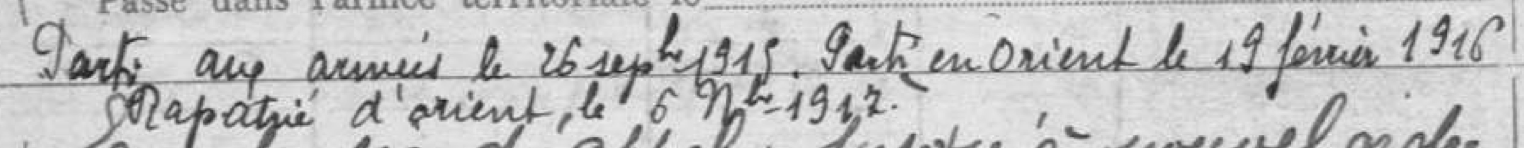 Passé dans l'armée territoriale le
Parti aux armées le 26 sepbre 1915. Parti en Orient le 19 février 1916
Rapatrié d'orient, le 6 Nbre 1917.
à nouvel